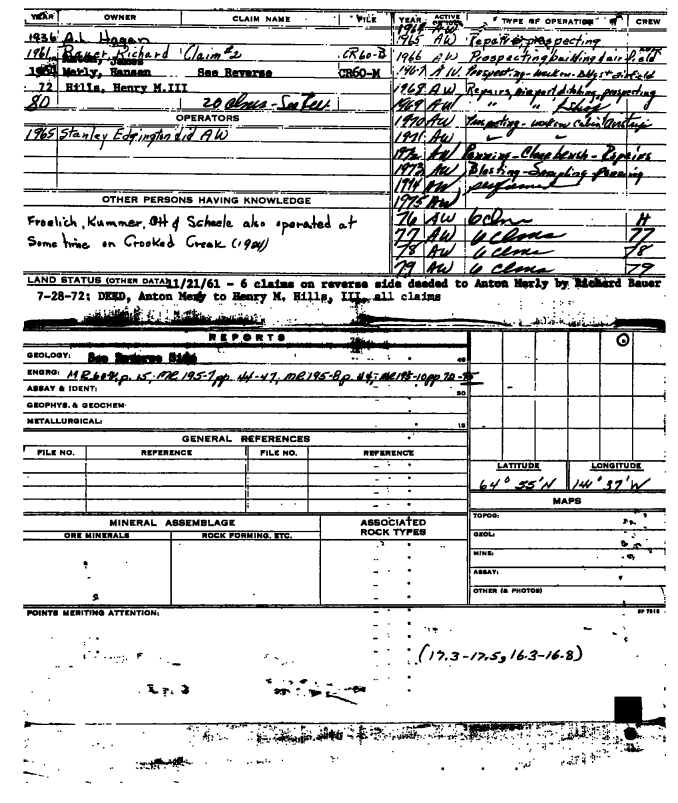 YEAR OWNER CLAIM NAME FILE
1936 A.L. Hagan
1961 Bauer, Richard Claim #2 CR60-B
Merly, Hansen See Reverse CR60-M
72 Hills, Henry M.III
80 20 clms - See Rev
OPERATORS
1965 Stanley Edgington did AW
OTHER PERSONS HAVING KNOWLEDGE
Froelich, Kummer, Ott & Scheele also operated at
Some time on Crooked Creek (1904)
YEAR ACTIVE TYPE OF OPERATION CREW
1964 AW
1965 AW Repair prospecting
1966 AW Prospecting building airfield
1967 AW Prospecting - work on bldgs & airfield
1968 AW Repairs, airport ditching, prospecting
1969 AW " "
1970 AW Prospecting - work on cabin Airstrip
1971 AW " "
1972 AW Panning - Clean bench - Repairs
1973 AW Blasting - Sampling panning
1974 AW performed
1975 AW
76 AW 6 clms H
77 AW 6 clms 77
78 AW 6 clms 78
79 AW 6 clms 79
LAND STATUS (OTHER DATA) 11/21/61 - 6 claims on reverse side deeded to Anton Merly by Richard Bauer
7-28-72: DEED, Anton Merly to Henry M. Hills, III, all claims
REPORTS
GEOLOGY: See Reverse Side 40
ENGRG: MR 60-4, p. 15; MR 195-7 pp. 44-47; MR 195-8 p. 44; MR 195-10 pp. 70-75
ASSAY & IDENT: 50
GEOPHYS. & GEOCHEM:
METALLURGICAL: 15
GENERAL REFERENCES
FILE NO. REFERENCE FILE NO. REFERENCE
LATITUDE LONGITUDE
64° 55'N 141° 37'W
MAPS
TOPOG:
GEOL:
MINE:
ASSAY:
OTHER (& PHOTOS)
MINERAL ASSEMBLAGE ASSOCIATED
ORE MINERALS ROCK FORMING, ETC. ROCK TYPES
POINTS MERITING ATTENTION:
(17.3-17.5, 16.3-16.8)